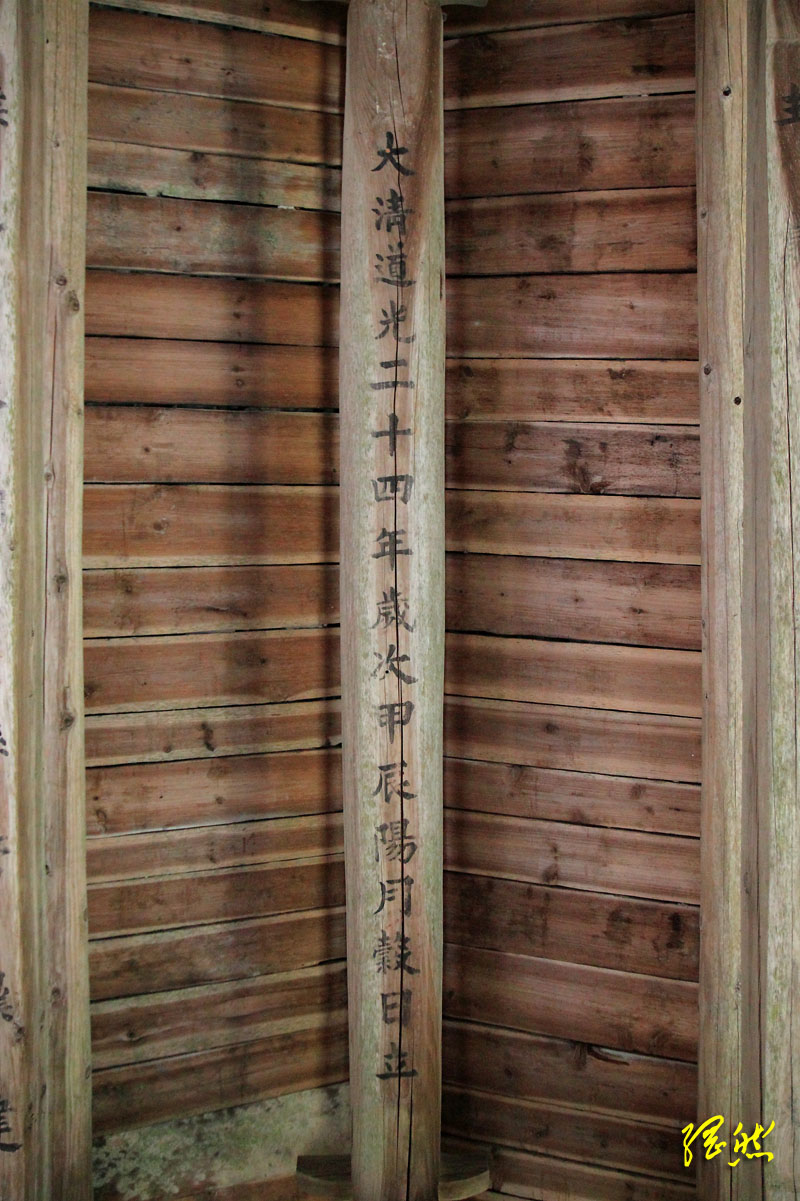 大清道光二十四年歲次甲辰陽月穀日立